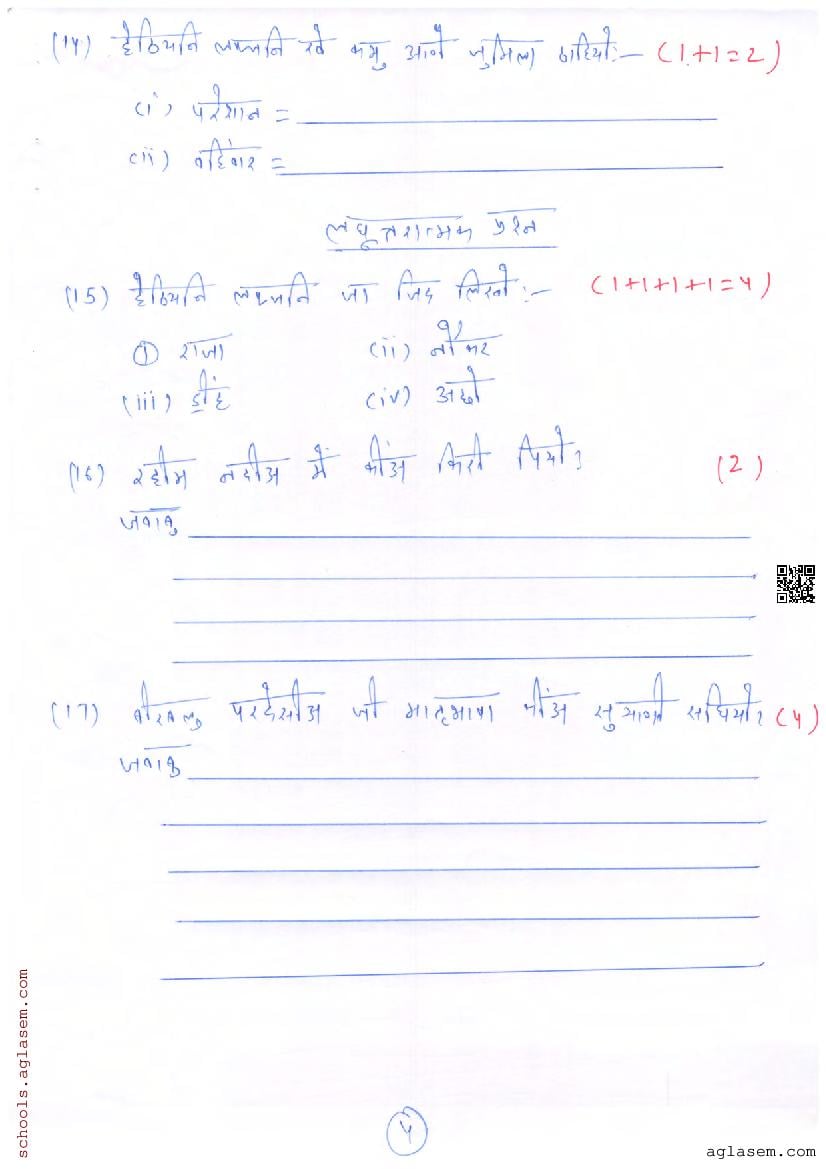 (14) हेठियनि लफ़्ज़नि खे कमु आणे जुमिला ठाहियो:- (1+1=2)
(i) परेशान =
(ii) वहिंवार =
लघूत्तरात्मक प्रश्न
(15) हेठियनि लफ़्ज़नि जा ज़िद लिखो:- (1+1+1+1=4)
(i) राजा (ii) नौकर
(iii) ॾींहं (iv) अछो
(16) रहीम नदीअ में कीअं किरी पियो? (2)
जवाबु
(17) बीरबलु परदेसीअ जी मातृभाषा कीअं सुञाणी सघियो? (4)
जवाबु
4
schools.aglasem.com
aglasem.com